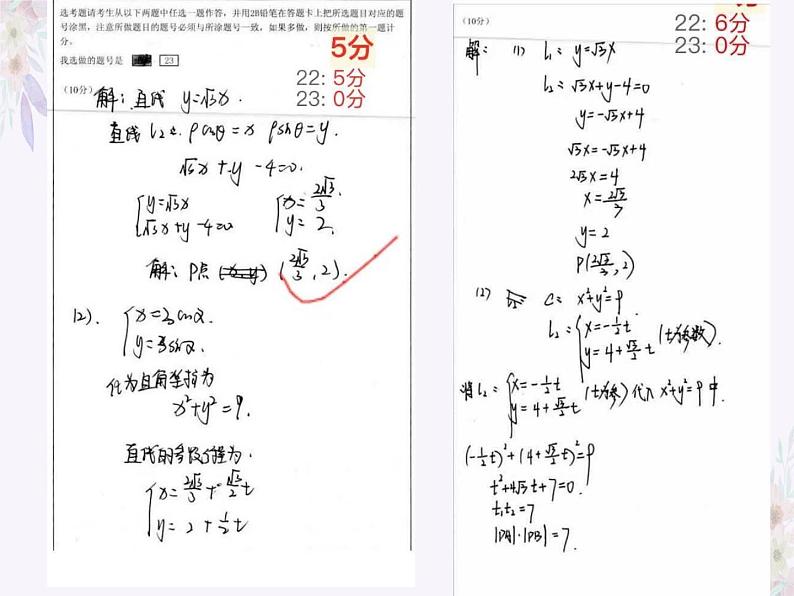 选考题请考生从以下两题中任选一题作答，并用2B铅笔在答题卡上把所选题目对应的题
号涂黑，注意所做题目的题号必须与所涂题号一致，如果多做，则按所做的第一题计
分。
我选做的题号是 23
5分
22: 5分
23: 0分
(10分)
解：直线 y=√3x.
直线 l₂ ρcosθ=x ρsinθ=y.
√3x+y-4=0.
{y=√3x
√3x+y-4=0
{x=2√3/3.
y=2.
解：P点 (2√3/3,2).
(2).
{x=3cosα.
y=3sinα.
化为直角坐标为
x²+y²=9.
直线的参数方程为：
{x=2√3/3+√3/2t
y=2+1/2t
(10分)
22: 6分
23: 0分
解：(1) l₁=y=√3x
l₂=√3x+y-4=0
y=-√3x+4
√3x=-√3x+4
2√3x=4
x=2√3/3
y=2
P(2√3/3,2)
(2) C=x²+y²=9.
l₂={x=-1/2t
y=4+√3/2t (t为参数)
将l₂={x=-1/2t
y=4+√3/2t (t为参) 代入 x²+y²=9中.
(-1/2t)²+(4+√3/2t)²=9
t²+4√3t+7=0.
t₁t₂=7
|PA|·|PB|=7.